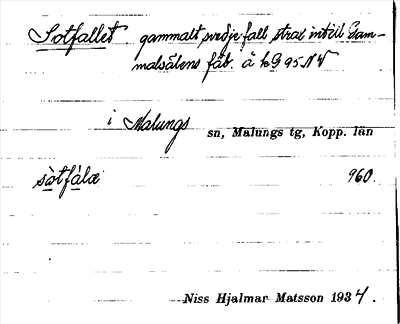 Sotfallet gammalt svedjefall strax intill Gam-
malsälens fäb. å kG 95 NV
i Malungs sn, Malungs tg, Kopp. län
sòtfálæ 960.
Niss Hjalmar Matsson 1934.